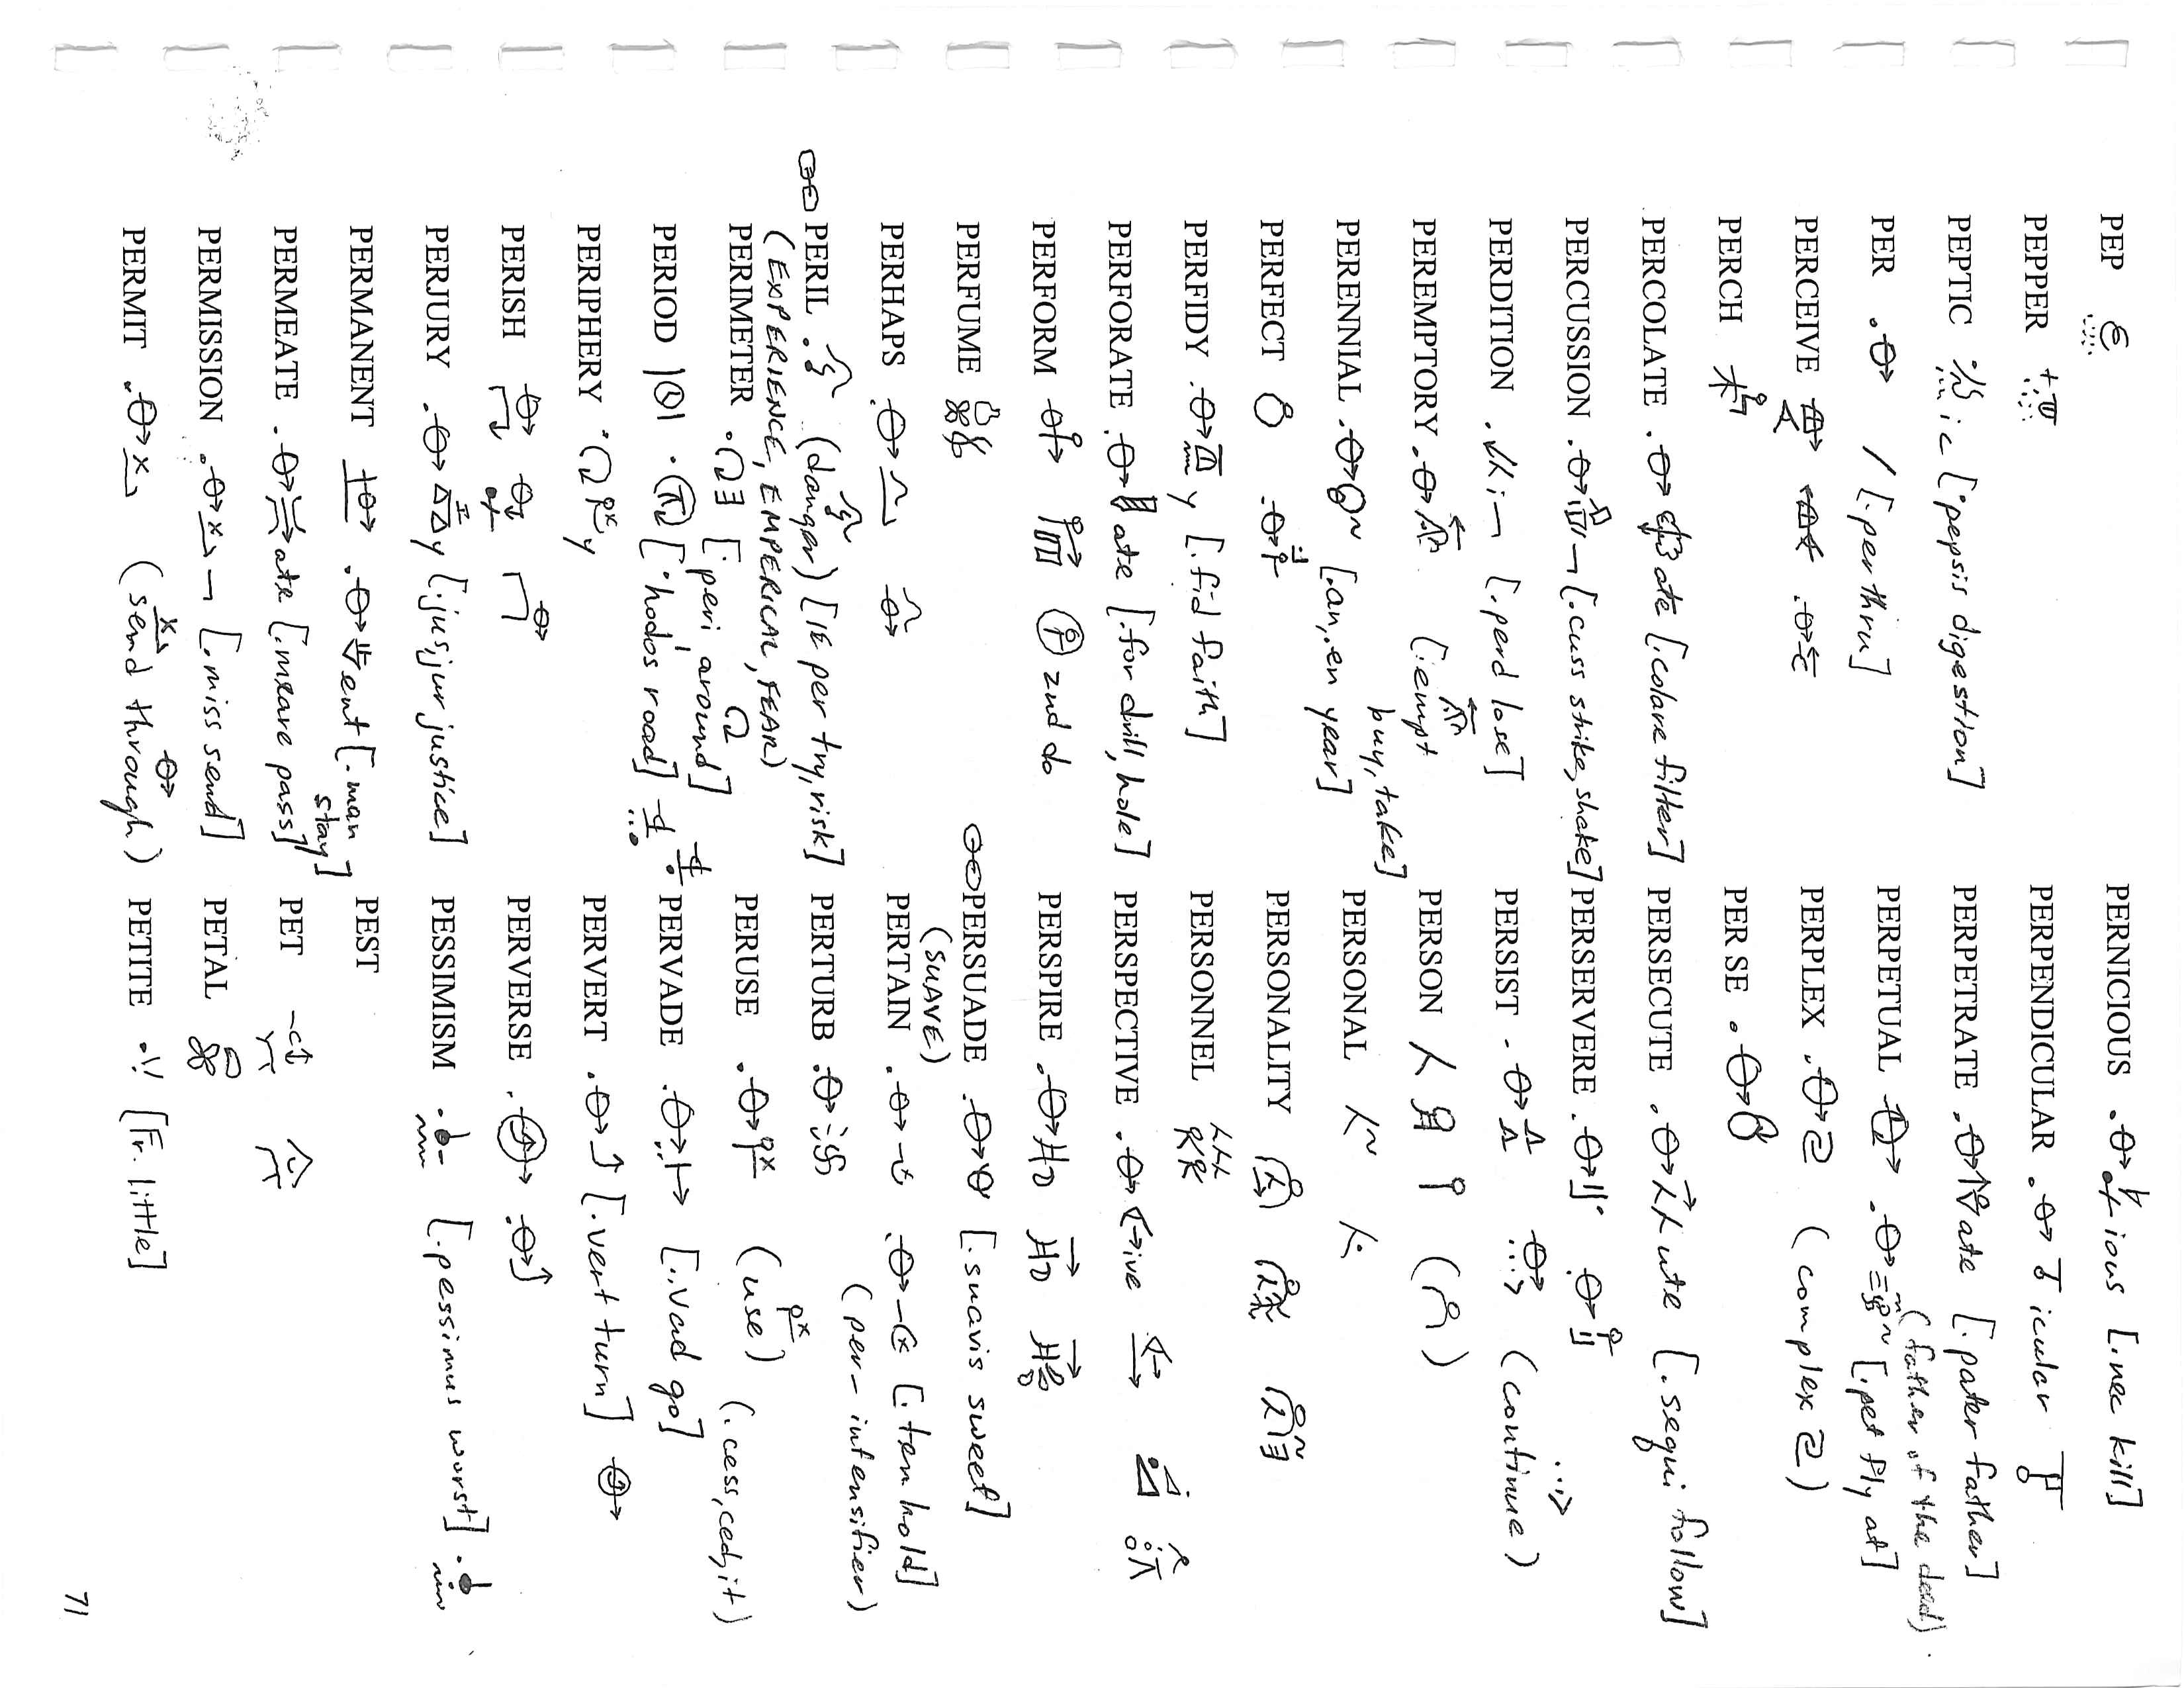 PEP
PEPPER
PEPTIC ic [.pepsis digestion]
PER / [.per thru]
PERCEIVE
PERCH
PERCOLATE ate [.colare filter]
PERCUSSION [.cuss strike, shake]
PERDITION [.perd lose]
PEREMPTORY [.empt buy, take]
PERENNIAL [.an, .en year]
PERFECT
PERFIDY y [.fid faith]
PERFORATE ate [.for drill, hole]
PERFORM 2nd do
PERFUME
PERHAPS
PERIL (danger) [IE per try, risk]
(EXPERIENCE, EMPERICAL, FEAR)
PERIMETER [.peri, around]
PERIOD [.hodos road]
PERIPHERY y
PERISH
PERJURY y [.jus, jur justice]
PERMANENT ent [.man stay]
PERMEATE ate [.meare pass]
PERMISSION [.miss send]
PERMIT (send through)
PERNICIOUS ious [.nec kill]
PERPENDICULAR icular
PERPETRATE ate [.pater father]
(father of the dead)
PERPETUAL [.pet fly at]
PERPLEX (complex)
PER SE
PERSECUTE ute [.sequi follow]
PERSERVERE
PERSIST (continue)
PERSON
PERSONAL
PERSONALITY
PERSONNEL
PERSPECTIVE ive
PERSPIRE
PERSUADE [.suavis sweet]
(SUAVE)
PERTAIN [.ten hold]
(per- intensifier)
PERTURB
PERUSE (use) (.cess, ced, it)
PERVADE [.vad go]
PERVERT [.vert turn]
PERVERSE
PESSIMISM [.pessimus worst]
PEST
PET
PETAL
PETITE [Fr. little]
71